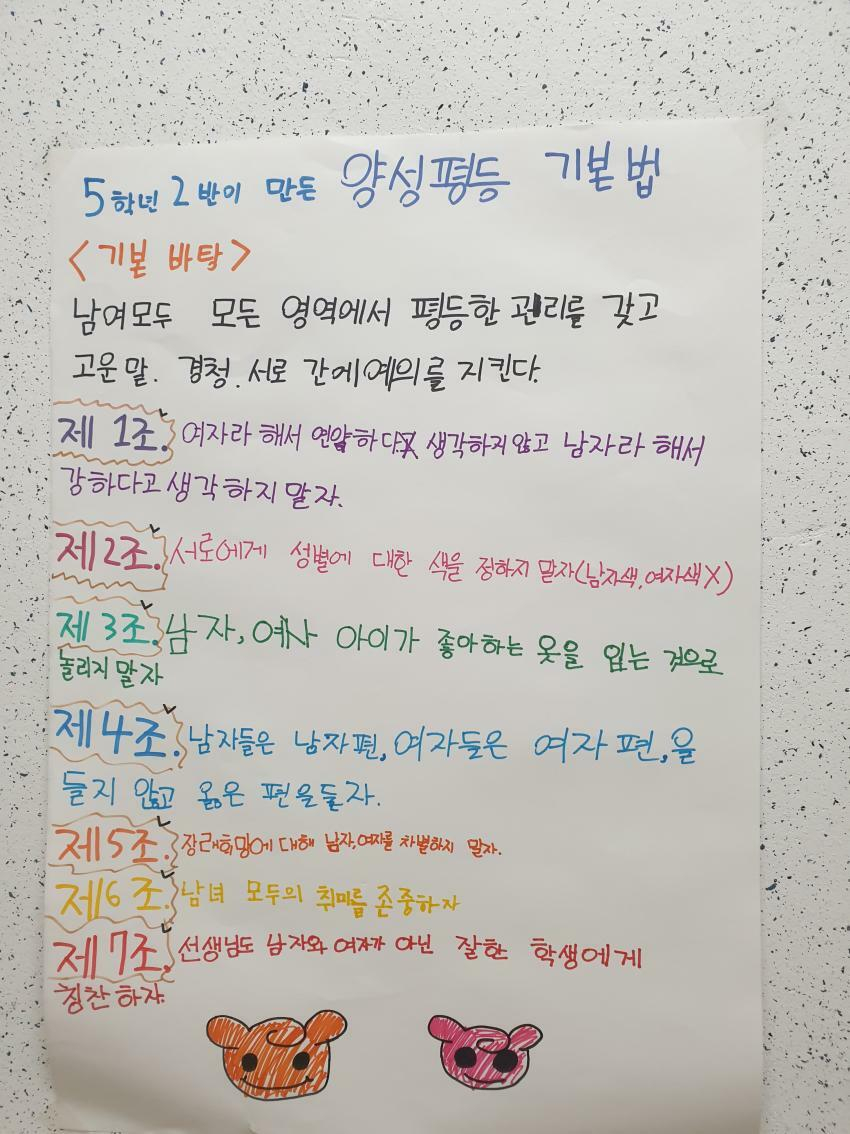 5학년 2반이 만든 양성평등 기본법
<기본 바탕>
남여모두 모든 영역에서 평등한 권리를 갖고
고운말. 경청. 서로 간에 예의를 지킨다.
제 1조. 여자라 해서 연약하다 생각하지 않고 남자라 해서
강하다고 생각하지 말자.
제2조. 서로에게 성별에 대한 색을 정하지 말자(남자색, 여자색X)
제 3조. 남자, 여자 아이가 좋아하는 옷을 입는 것으로
놀리지 말자
제4조. 남자들은 남자편, 여자들은 여자편,을
들지 않고 옳은 편을들자.
제5조. 장래희망에 대해 남자,여자를 차별하지 말자.
제6조. 남녀 모두의 취미를 존중하자
제7조. 선생님도 남자와 여자가 아닌 잘한 학생에게
칭찬하자.